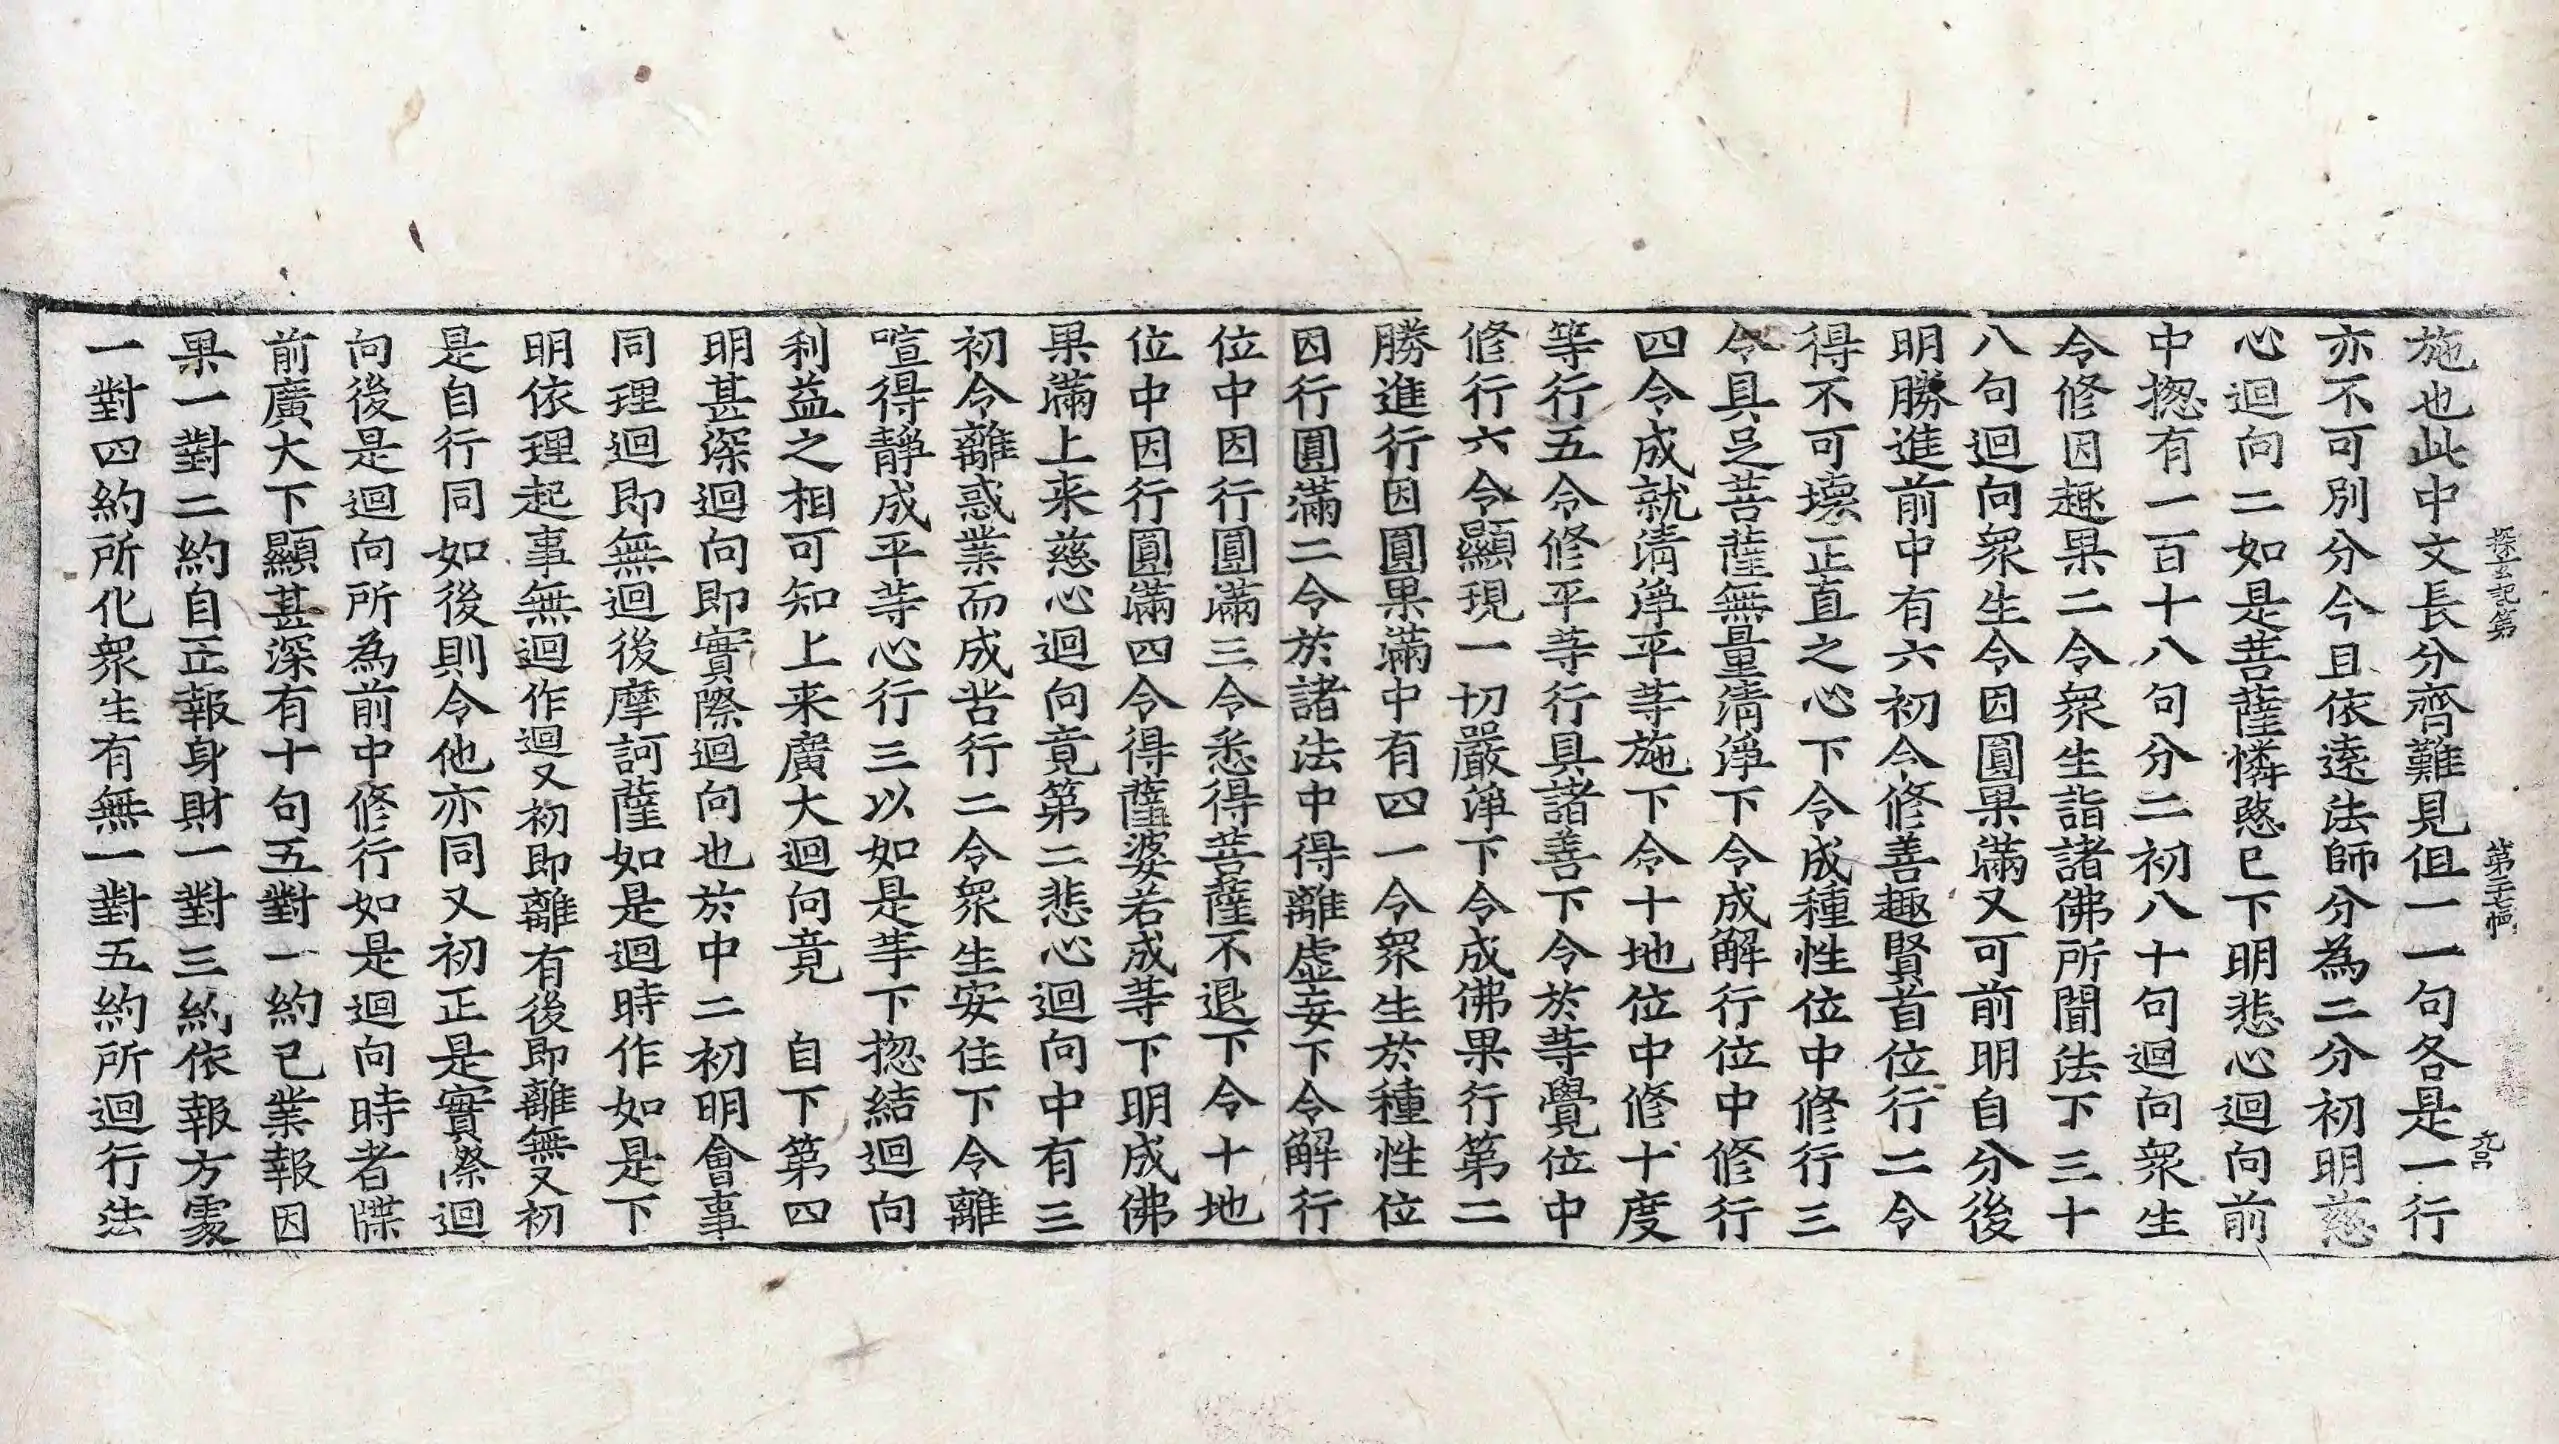 探玄記第 第二十七幅 九宮
施也此中文長分齊難見但一一句各是一行
亦不可別分今且依遠法師分為二分初明慈
心迴向二如是菩薩憐愍已下明悲心迴向前
中揔有一百十八句分二初八十句迴向眾生
令修因趣果二令眾生詣諸佛所聞法下三十
八句迴向眾生令因圓果滿又可前明自分後
明勝進前中有六初令修善趣賢首位行二令
得不可壞正直之心下令成種性位中修行三
令具足菩薩無量清淨下令成解行位中修行
四令成就清淨平等施下令十地位中修十度
等行五令修平等行具諸善下令於等覺位中
修行六令顯現一切嚴淨下令成佛果行第二
勝進行因圓果滿中有四一令眾生於種性位
因行圓滿二令於諸法中得離虛妄下令解行
位中因行圓滿三令悉得菩薩不退下令十地
位中因行圓滿四令得薩婆若成等下明成佛
果滿上来慈心迴向竟第二悲心迴向中有三
初令離惑業而成苦行二令眾生安住下令離
喧得靜成平等心行三以如是等下揔結迴向
利益之相可知上来廣大迴向竟　自下第四
明甚深迴向即實際迴向也於中二初明會事
同理迴即無迴後摩訶薩如是迴時作如是下
明依理起事無迴作迴又初即離有後即離無又初
是自行同如後則令他亦同又初正是實際迴
向後是迴向所為前中修行如是迴向時者牒
前廣大下顯甚深有十句五對一約已業報因
果一對二約自正報身財一對三約依報方處
一對四約所化眾生有無一對五約所迴行法